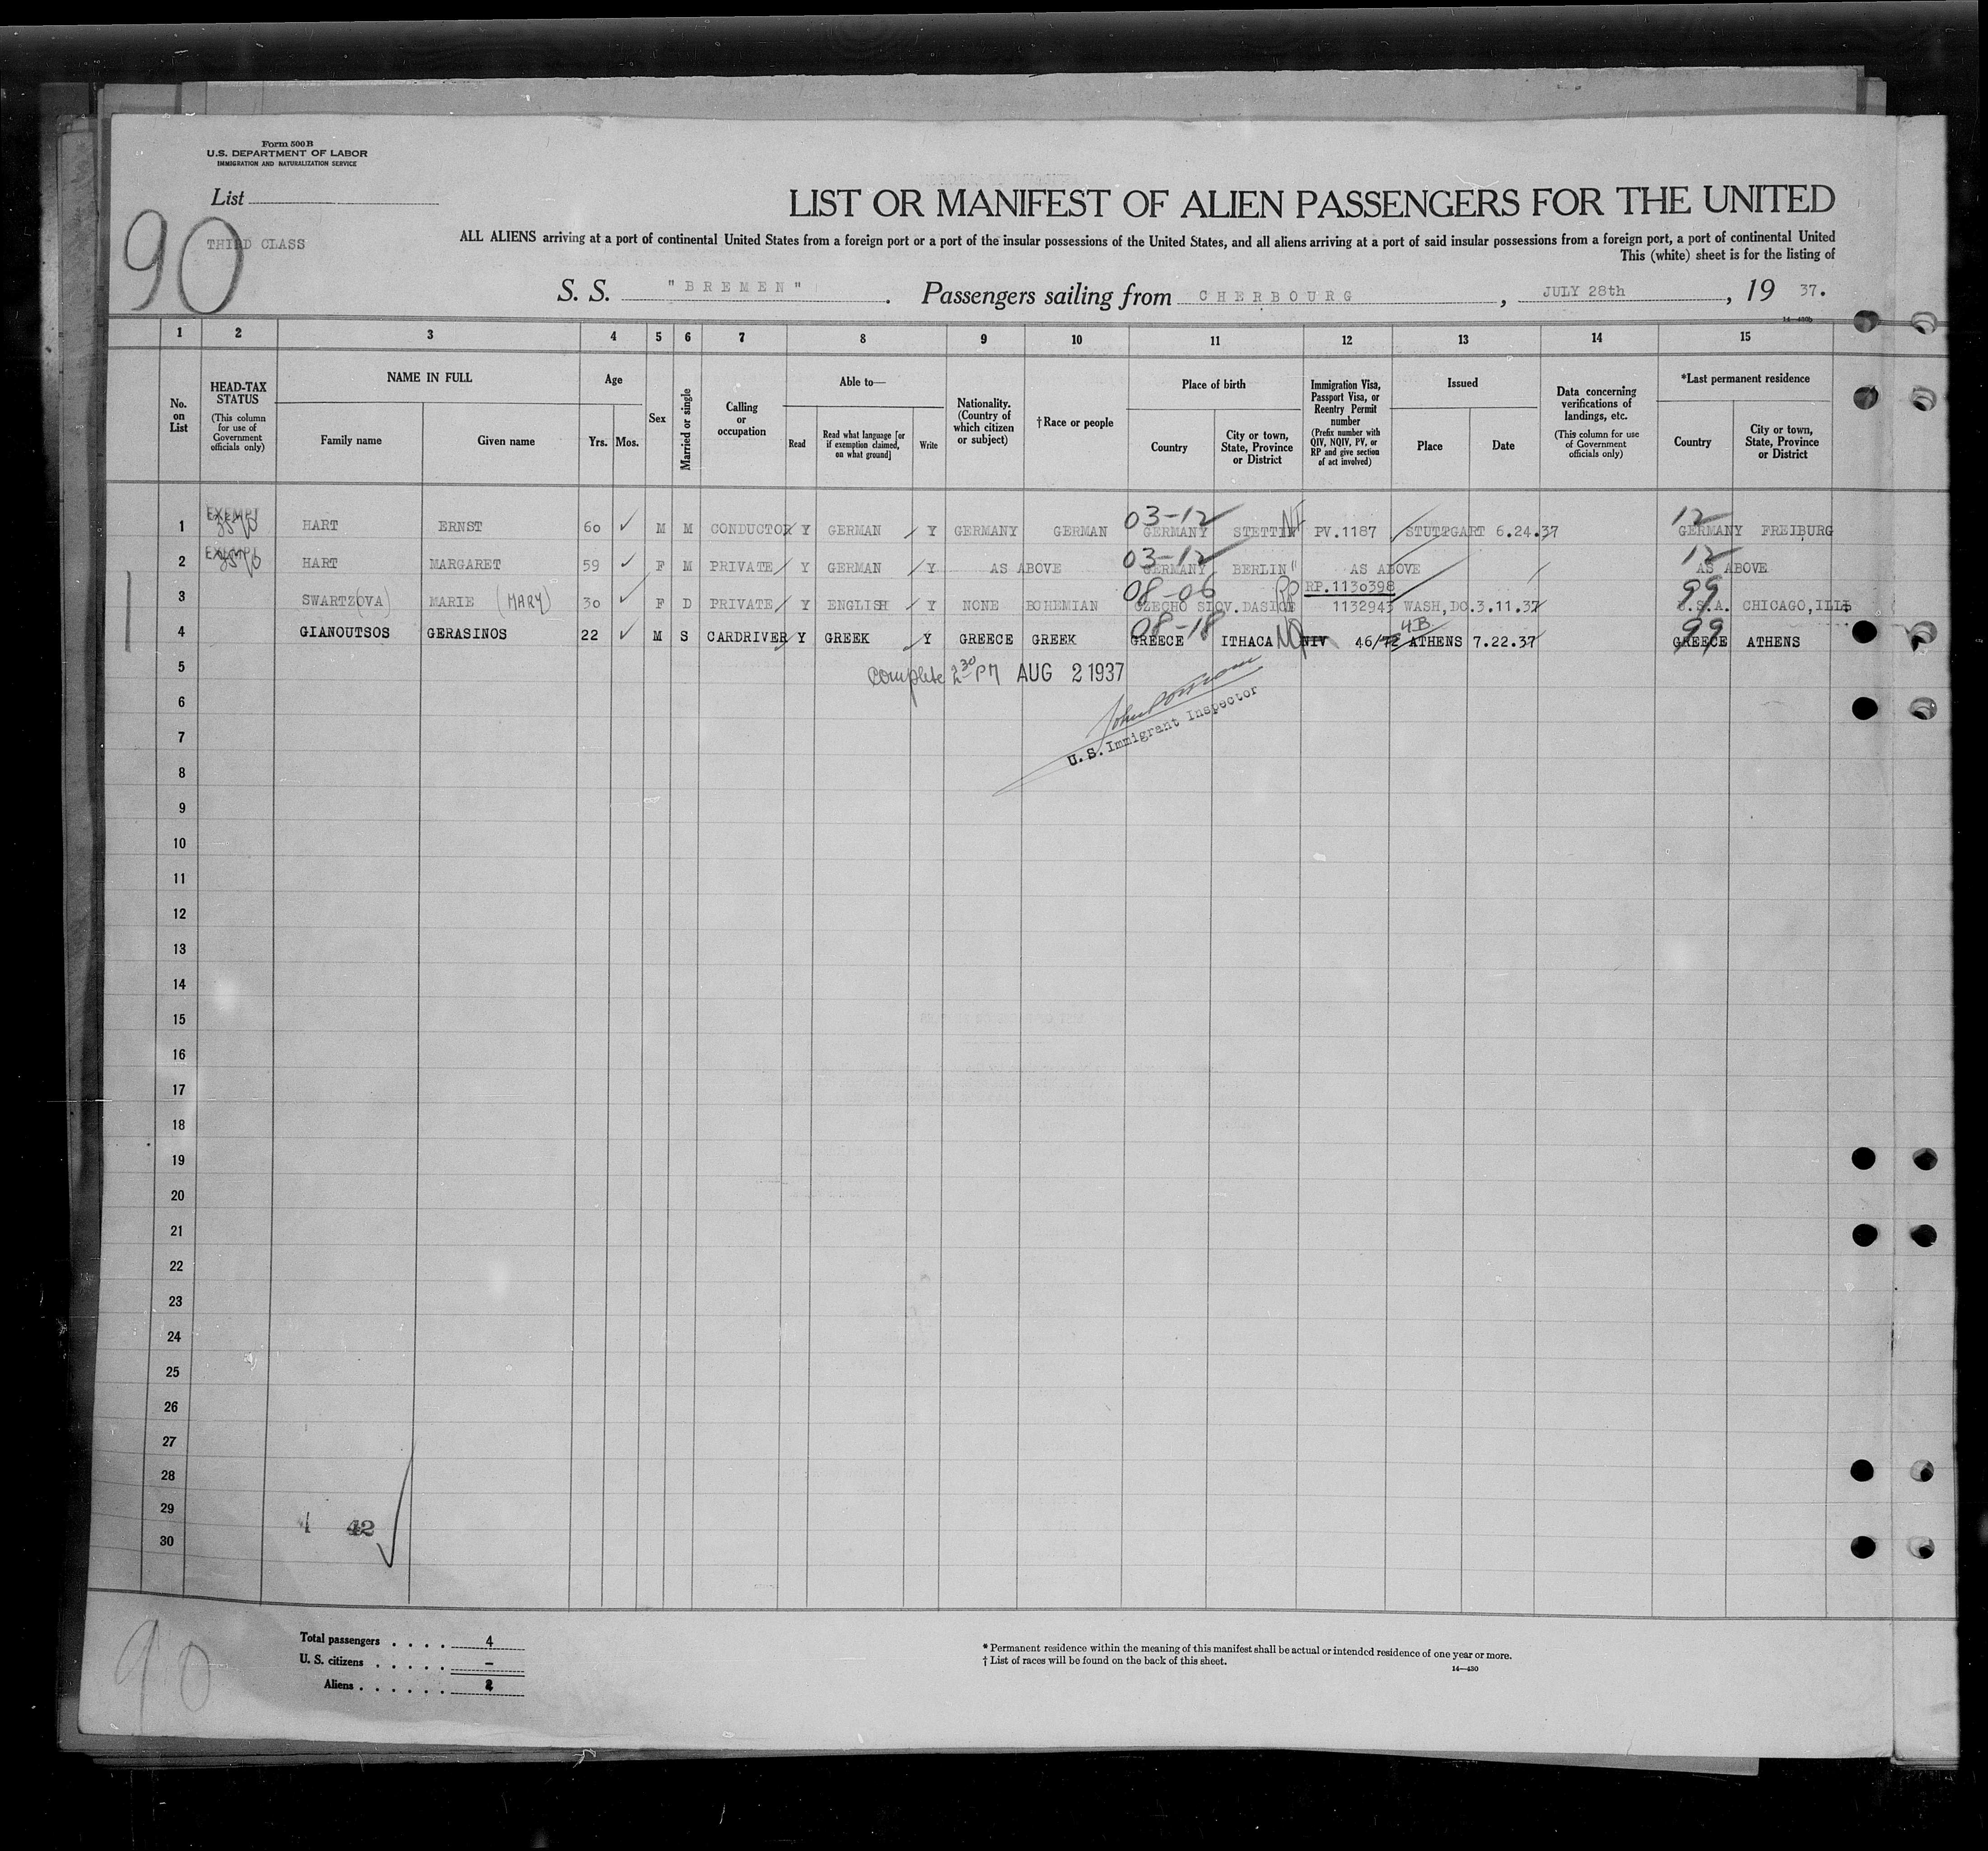 Form 500 B
U.S. DEPARTMENT OF LABOR
IMMIGRATION AND NATURALIZATION SERVICE
List
90
THIRD CLASS
LIST OR MANIFEST OF ALIEN PASSENGERS FOR THE UNITED
ALL ALIENS arriving at a port of continental United States from a foreign port or a port of the insular possessions of the United States, and all aliens arriving at a port of said insular possessions from a foreign port, a port of continental United
This (white) sheet is for the listing of
S. S. "BREMEN". Passengers sailing from CHERBOURG, JULY 28th, 19 37.
1 2 3 4 5 6 7 8 9 10 11 12 13 14 15
No. on List
HEAD-TAX STATUS (This column for use of Government officials only)
NAME IN FULL
Family name Given name
Age
Yrs. Mos.
Sex
Married or single
Calling or occupation
Able to—
Read Read what language [or if exemption claimed, on what ground] Write
Nationality. (Country of which citizen or subject)
†Race or people
Place of birth
Country City or town, State, Province or District
Immigration Visa, Passport Visa, or Reentry Permit number (Prefix number with QIV, NQIV, PV, or RP and give section of act involved)
Issued
Place Date
Data concerning verifications of landings, etc. (This column for use of Government officials only)
*Last permanent residence
Country City or town, State, Province or District
EXEMPT 03-12 12
1 HART ERNST 60 M M CONDUCTOR Y GERMAN Y GERMANY GERMAN GERMANY STETTIN PV.1187 STUTTGART 6.24.37 GERMANY FREIBURG
EXEMPT 03-12 12
2 HART MARGARET 59 F M PRIVATE Y GERMAN Y AS ABOVE GERMANY BERLIN " AS ABOVE AS ABOVE
08-06 RP RP.1130398 99
3 SWARTZ(OVA) MARIE (MARY) 30 F D PRIVATE Y ENGLISH Y NONE BOHEMIAN CZECHO SLOV. DASICE 1132943 WASH,DC.3.11.37 U.S.A. CHICAGO,ILLS
08-18 4B. 99
4 GIANOUTSOS GERASINOS 22 M S CARDRIVER Y GREEK Y GREECE GREEK GREECE ITHACA NIV 46/72 ATHENS 7.22.37 GREECE ATHENS
5 Complete 2 30 PM AUG 2 1937
6
U. S. Immigrant Inspector
7
8
9
10
11
12
13
14
15
16
17
18
19
20
21
22
23
24
25
26
27
28
29
4 42
30
90
Total passengers . . . . 4
U. S. citizens . . . . . –
Aliens . . . . . .
* Permanent residence within the meaning of this manifest shall be actual or intended residence of one year or more.
† List of races will be found on the back of this sheet.
14—430